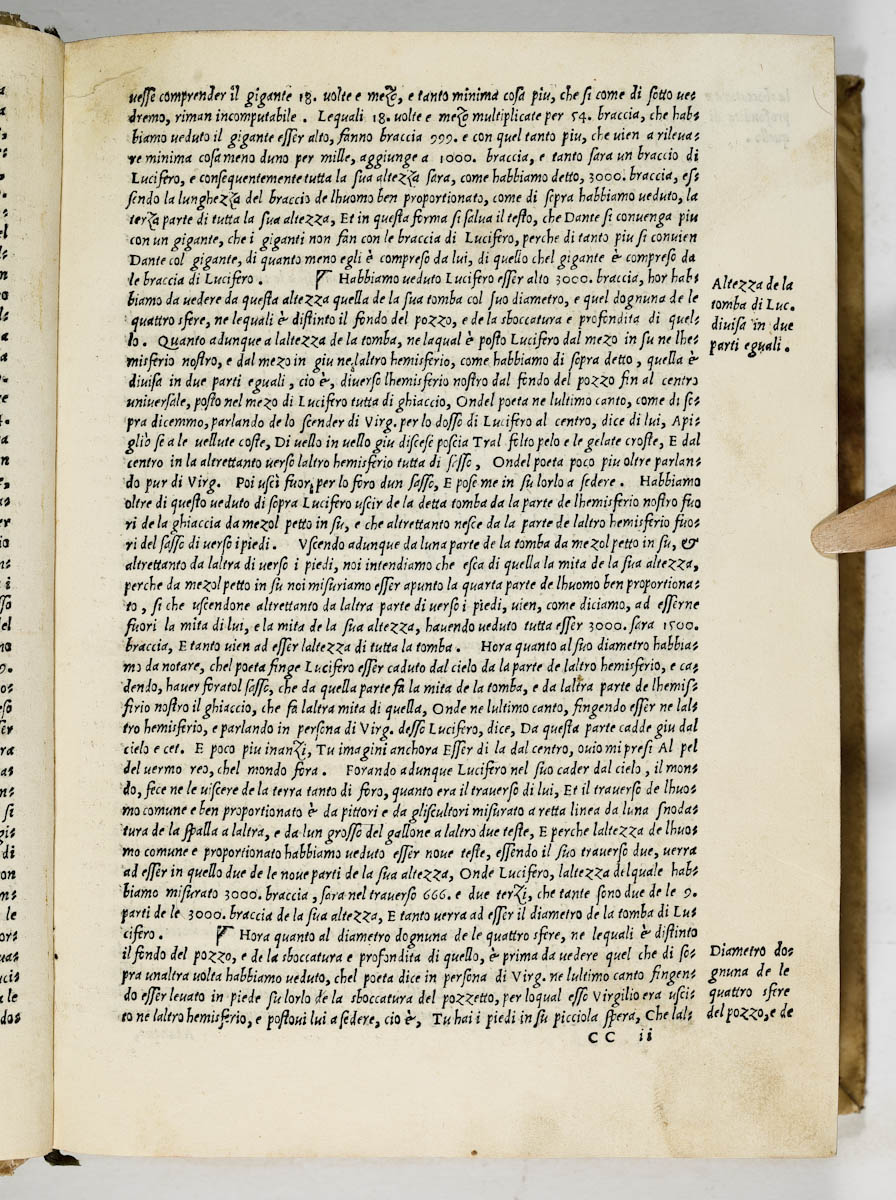 uesse comprender il gigante 18. uolte e mezo, e tanto minima cosa piu, che si come di sotto ue⸗
dremo, riman incomputabile. Lequali 18. uolte e mezo multiplicate per 54. braccia, che hab⸗
biamo ueduto il gigante esser alto, fanno braccia 999. e con quel tanto piu, che uien a rileua⸗
re minima cosa meno duno per mille, aggiunge a 1000. braccia, e tanto sara un braccio di
Lucifero, e consequentemente tutta la sua altezza sara, come habbiamo detto, 3000. braccia, es⸗
sendo la lunghezza del braccio de lhuomo ben proportionato, come di sopra habbiamo ueduto, la
terza parte di tutta la sua altezza, Et in questa forma si salua il testo, che Dante si conuenga piu
con un gigante, che i giganti non fan con le braccia di Lucifero, perche di tanto piu si conuien
Dante col gigante, di quanto meno egli è compreso da lui, di quello chel gigante è compreso da
le braccia di Lucifero. Habbiamo ueduto Lucifero esser alto 3000. braccia, hor hab⸗
biamo da uedere da questa altezza quella de la sua tomba col suo diametro, e quel dognuna de le
quattro sfere, ne lequali è distinto il fondo del pozzo, e de la sboccatura e profondita di quel⸗
lo. Quanto adunque a laltezza de la tomba, ne laqual è posto Lucifero dal mezo in su ne lhe⸗
misferio nostro, e dal mezo in giu ne laltro hemisferio, come habbiamo di sopra detto, quella è
diuisa in due parti eguali, cio è, diuerso lhemisferio nostro dal fondo del pozzo fin al centro
uniuersale, posto nel mezo di Lucifero tutta di ghiaccio, Ondel poeta ne lultimo canto, come di so⸗
pra dicemmo, parlando de lo scender di Virg. per lo dosso di Lucifero al centro, dice di lui, Api⸗
gliò se a le uellute coste, Di uello in uello giu discese poscia Tral folto pelo e le gelate croste, E dal
centro in la altrettanto uerso laltro hemisferio tutta di sasso, Ondel poeta poco piu oltre parlan⸗
do pur di Virg. Poi uscì fuor per lo foro dun sasso, E pose me in su lorlo a sedere. Habbiamo
oltre di questo ueduto di sopra Lucifero uscir de la detta tomba da la parte de lhemisferio nostro fuo
ri de la ghiaccia da mezol petto in su, e che altrettanto nesce da la parte de laltro hemisferio fuo⸗
ri del sasso di uerso i piedi. Vscendo adunque da luna parte de la tomba da mezol petto in su, &
altrettanto da laltra di uerso i piedi, noi intendiamo che esca di quella la mita de la sua altezza,
perche da mezol petto in su noi misuriamo esser apunto la quarta parte de lhuomo ben proportiona⸗
to, si che uscendone altrettanto da laltra parte di uerso i piedi, uien, come diciamo, ad esserne
fuori la mita di lui, e la mita de la sua altezza, hauendo ueduto tutta esser 3000. sara 1500.
braccia, E tanto uien ad esser laltezza di tutta la tomba. Hora quanto al suo diametro habbia⸗
mo da notare, chel poeta finge Lucifero esser caduto dal cielo da la parte de laltro hemisferio, e ca⸗
dendo, hauer foratol sasso, che da quella parte fa la mita de la tomba, e da laltra parte de lhemis⸗
ferio nostro il ghiaccio, che fa laltra mita di quella, Onde ne lultimo canto, fingendo esser ne lal⸗
tro hemisferio, e parlando in persona di Virg. desso Lucifero, dice, Da questa parte cadde giu dal
cielo e cet. E poco piu inanzi, Tu imagini anchora Esser di la dal centro, ouio mi presi Al pel
del uermo reo, chel mondo fora. Forando adunque Lucifero nel suo cader dal cielo, il mon⸗
do, fece ne le uiscere de la terra tanto di foro, quanto era il trauerso di lui, Et il trauerso de lhuo⸗
mo comune e ben proportionato è da pittori e da gliscultori misurato a retta linea da luna snoda⸗
tura de la spalla a laltra, e da lun grosso del gallone a laltro due teste, E perche laltezza de lhuo⸗
mo comune e proportionato habbiamo ueduto esser noue teste, essendo il suo trauerso due, uerra
ad esser in quello due de le noue parti de la sua altezza, Onde Lucifero, laltezza delquale hab⸗
biamo misurato 3000. braccia, sara nel trauerso 666. e due terzi, che tante sono due de le 9.
parti de le 3000. braccia de la sua altezza, E tanto uerra ad esser il diametro de la tomba di Lu⸗
cifero. Hora quanto al diametro dognuna de le quattro sfere, ne lequali è distinto
il fondo del pozzo, e de la sboccatura e profondita di quello, è prima da uedere quel che di so⸗
pra unaltra uolta habbiamo ueduto, chel poeta dice in persona di Virg. ne lultimo canto fingen⸗
do esser leuato in piede su lorlo de la sboccatura del pozzetto, per loqual esso Virgilio era usci⸗
to ne laltro hemisferio, e postoui lui a sedere, cio è, Tu hai i piedi in su picciola spera, Che lal⸗
CC ii
Altezza de la
tomba di Luc.
diuisa in due
parti eguali.
Diametro do⸗
gnuna de le
quattro sfere
del pozzo, e de